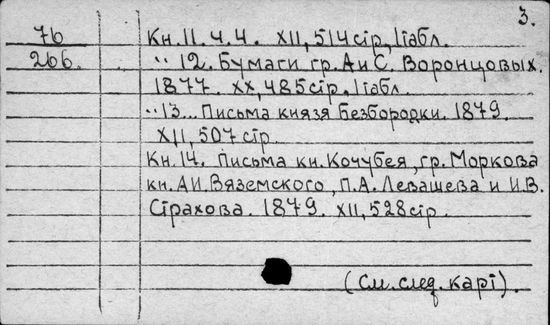 3.
76 Кн.11. ч.4. XII, 514 стр, 1 табл.
266. " 12. Бумаги гр. А и С. Воронцовых.
1877. XX, 485 стр., 1 табл.
" 13... Письма князя Безбородки. 1879.
XII, 507 стр.
Кн.14. Письма кн. Кочубея, гр. Моркова
кн. А.И. Вяземского, П.А. Левашева и И.В.
Страхова. 1879. XII, 528 стр.
(См. след. карт).